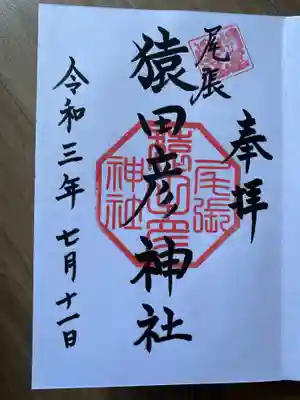 尾張
奉拝
猿田彦神社
令和三年七月十一日
尾張
猿田彦
神社